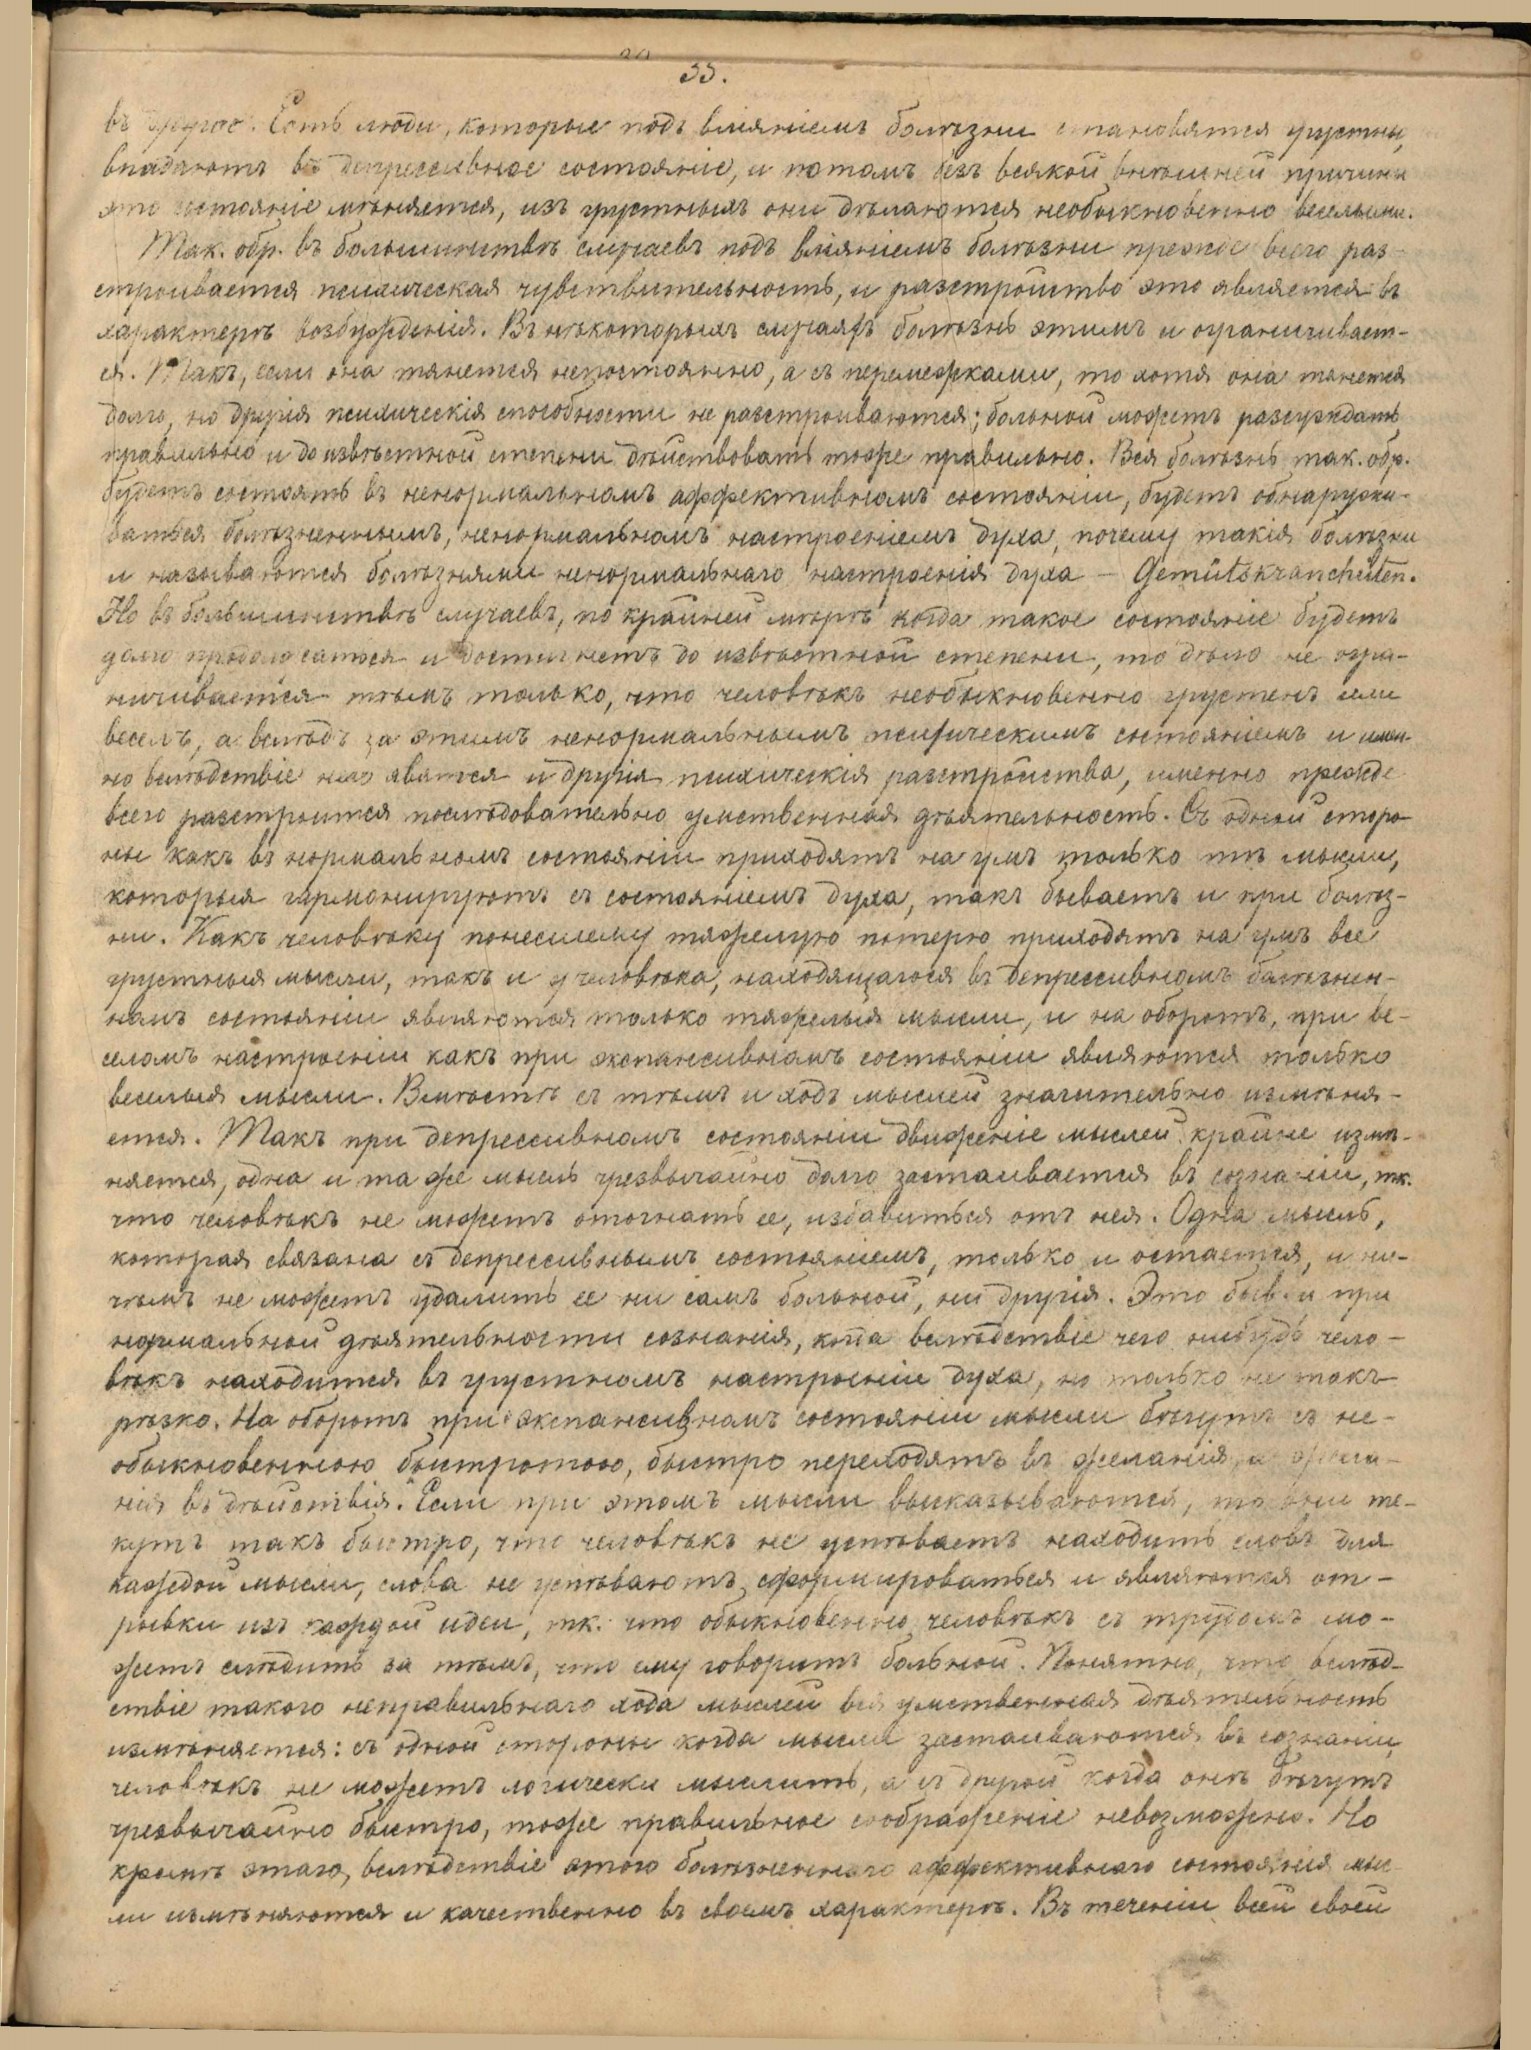 33.
въ другое. Есть люди, которые подъ вліяніемъ болѣзни становятся грустны,
впадаютъ въ депрессивное состояніе, и потомъ безъ всякой внѣшней причины
это состояніе мѣняется, изъ грустныхъ они дѣлаются необыкновенно веселыми.
Так. обр. въ большинствѣ случаевъ подъ вліяніемъ болѣзни прежде всего раз-
строивается психическая чувствительность, и разстройство это является въ
характерѣ возбужденія. Въ нѣкоторыхъ случаяхъ болѣзнь этимъ и ограничивает-
ся. Такъ, если она тянется непостоянно, а съ перемежками, то хотя она тянется
долго, но другія психическія способности не разстроиваются; больной можетъ разсуждать
правильно и до извѣстной степени дѣйствовать тоже правильно. Вся болѣзнь так. обр.
будетъ состоять въ ненормальномъ аффективномъ состояніи, будетъ обнаружи-
ваться болѣзненнымъ, ненормальнымъ настроеніемъ духа, почему такія болѣзни
и называются болѣзнями ненормальнаго настроенія духа — Gemütskrancheiten.
Но въ большинствѣ случаевъ, по крайней мѣрѣ когда такое состояніе будетъ
долго продолжаться и достигнетъ до извѣстной степени, то дѣло не огра-
ничивается тѣмъ только, что человѣкъ необыкновенно грустенъ или
веселъ, а вслѣдъ за этимъ ненормальнымъ психическимъ состояніемъ и имен-
но вслѣдствіе него явятся и другія психическія разстройства, именно прежде
всего разстроится послѣдовательно умственная дѣятельность. Съ одной сторо-
ны какъ въ нормальномъ состояніи приходятъ на умъ только тѣ мысли,
которыя гармонируютъ съ состояніемъ духа, такъ бываетъ и при болѣз-
ни. Какъ человѣку понесшему тяжелую потерю приходятъ на умъ все
грустныя мысли, такъ и у человѣка, находящагося въ депрессивномъ болѣзнен-
номъ состояніи являются только тяжелыя мысли, и на оборотъ, при ве-
селомъ настроеніи какъ при экспансивномъ состояніи являются только
веселыя мысли. Вмѣстѣ съ тѣмъ и ходъ мыслей значительно измѣня-
ется. Такъ при депрессивномъ состояніи движеніе мыслей крайне измѣ-
няется, одна и та же мысль чрезвычайно долго застаивается въ сознаніи, тк.
что человѣкъ не можетъ отогнать ее, избавиться отъ нея. Одна мысль,
которая связана съ депрессивнымъ состояніемъ, только и остается, и ни-
чѣмъ не можетъ удалить ее ни самъ больной, ни другія. Это бываетъ и при
нормальной дѣятельности сознанія, когда вслѣдствіе чего нибудь чело-
вѣкъ находится въ грустномъ настроеніи духа, но только не такъ
рѣзко. На оборотъ при экспансивномъ состояніи мысли бѣгутъ съ не-
обыкновенною быстротою, быстро переходятъ въ желанія, а жела-
нія въ дѣйствія. Если при этомъ мысли высказываются, то они те-
кутъ такъ быстро, что человѣкъ не успѣваетъ находить словъ для
каждой мысли, слова не успѣваютъ сформироваться и являются от-
рывки изъ каждой идеи, тк. что обыкновенно человѣкъ съ трудомъ мо-
жетъ слѣдить за тѣмъ, что ему говоритъ больной. Понятно, что вслѣд-
ствіе такого неправильнаго хода мыслей вся умственная дѣятельность
измѣняется: съ одной стороны когда мысли застаиваются въ сознаніи,
человѣкъ не можетъ логически мыслить, а съ другой когда онѣ бѣгутъ
чрезвычайно быстро, тоже правильное соображеніе невозможно. Но
кромѣ этаго, вслѣдствіе этого болѣзненнаго аффективнаго состоянія мыс-
ли измѣняются и качественно въ своемъ характерѣ. Въ теченіи всей своей